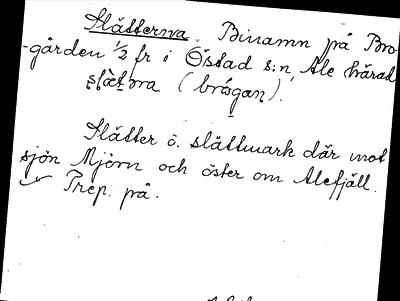 Slätterna. Binamn på Bro-
gården ½ fr i Östad s:n, Ale härad
slät̤na (brógan̤).
Slätter ö. slättmark där mot
sjön Mjörn och öster om Alefjäll.
Prep. på.